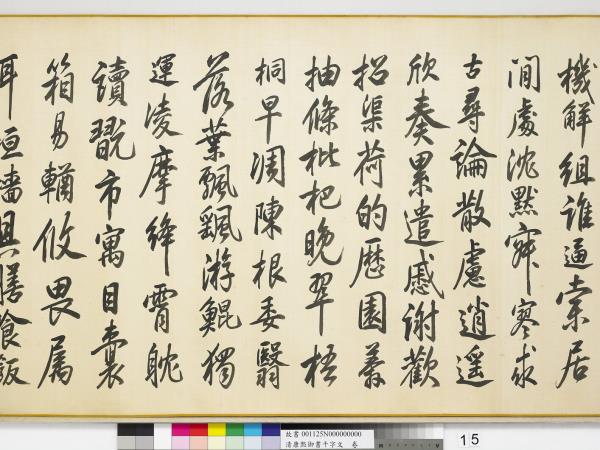 機解組誰逼索居
閒處沈默寂寥求
古尋論散慮逍遙
欣奏累遣慼謝歡
招渠荷的歷園莽
抽條枇杷晚翠梧
桐早凋陳根委翳
落葉飄颻游鯤獨
運凌摩絳霄耽
讀翫市寓目囊
箱易輶攸畏属
耳垣墻具膳飡飯
故書 001125N000000000
清康熙御書千字文 卷
15